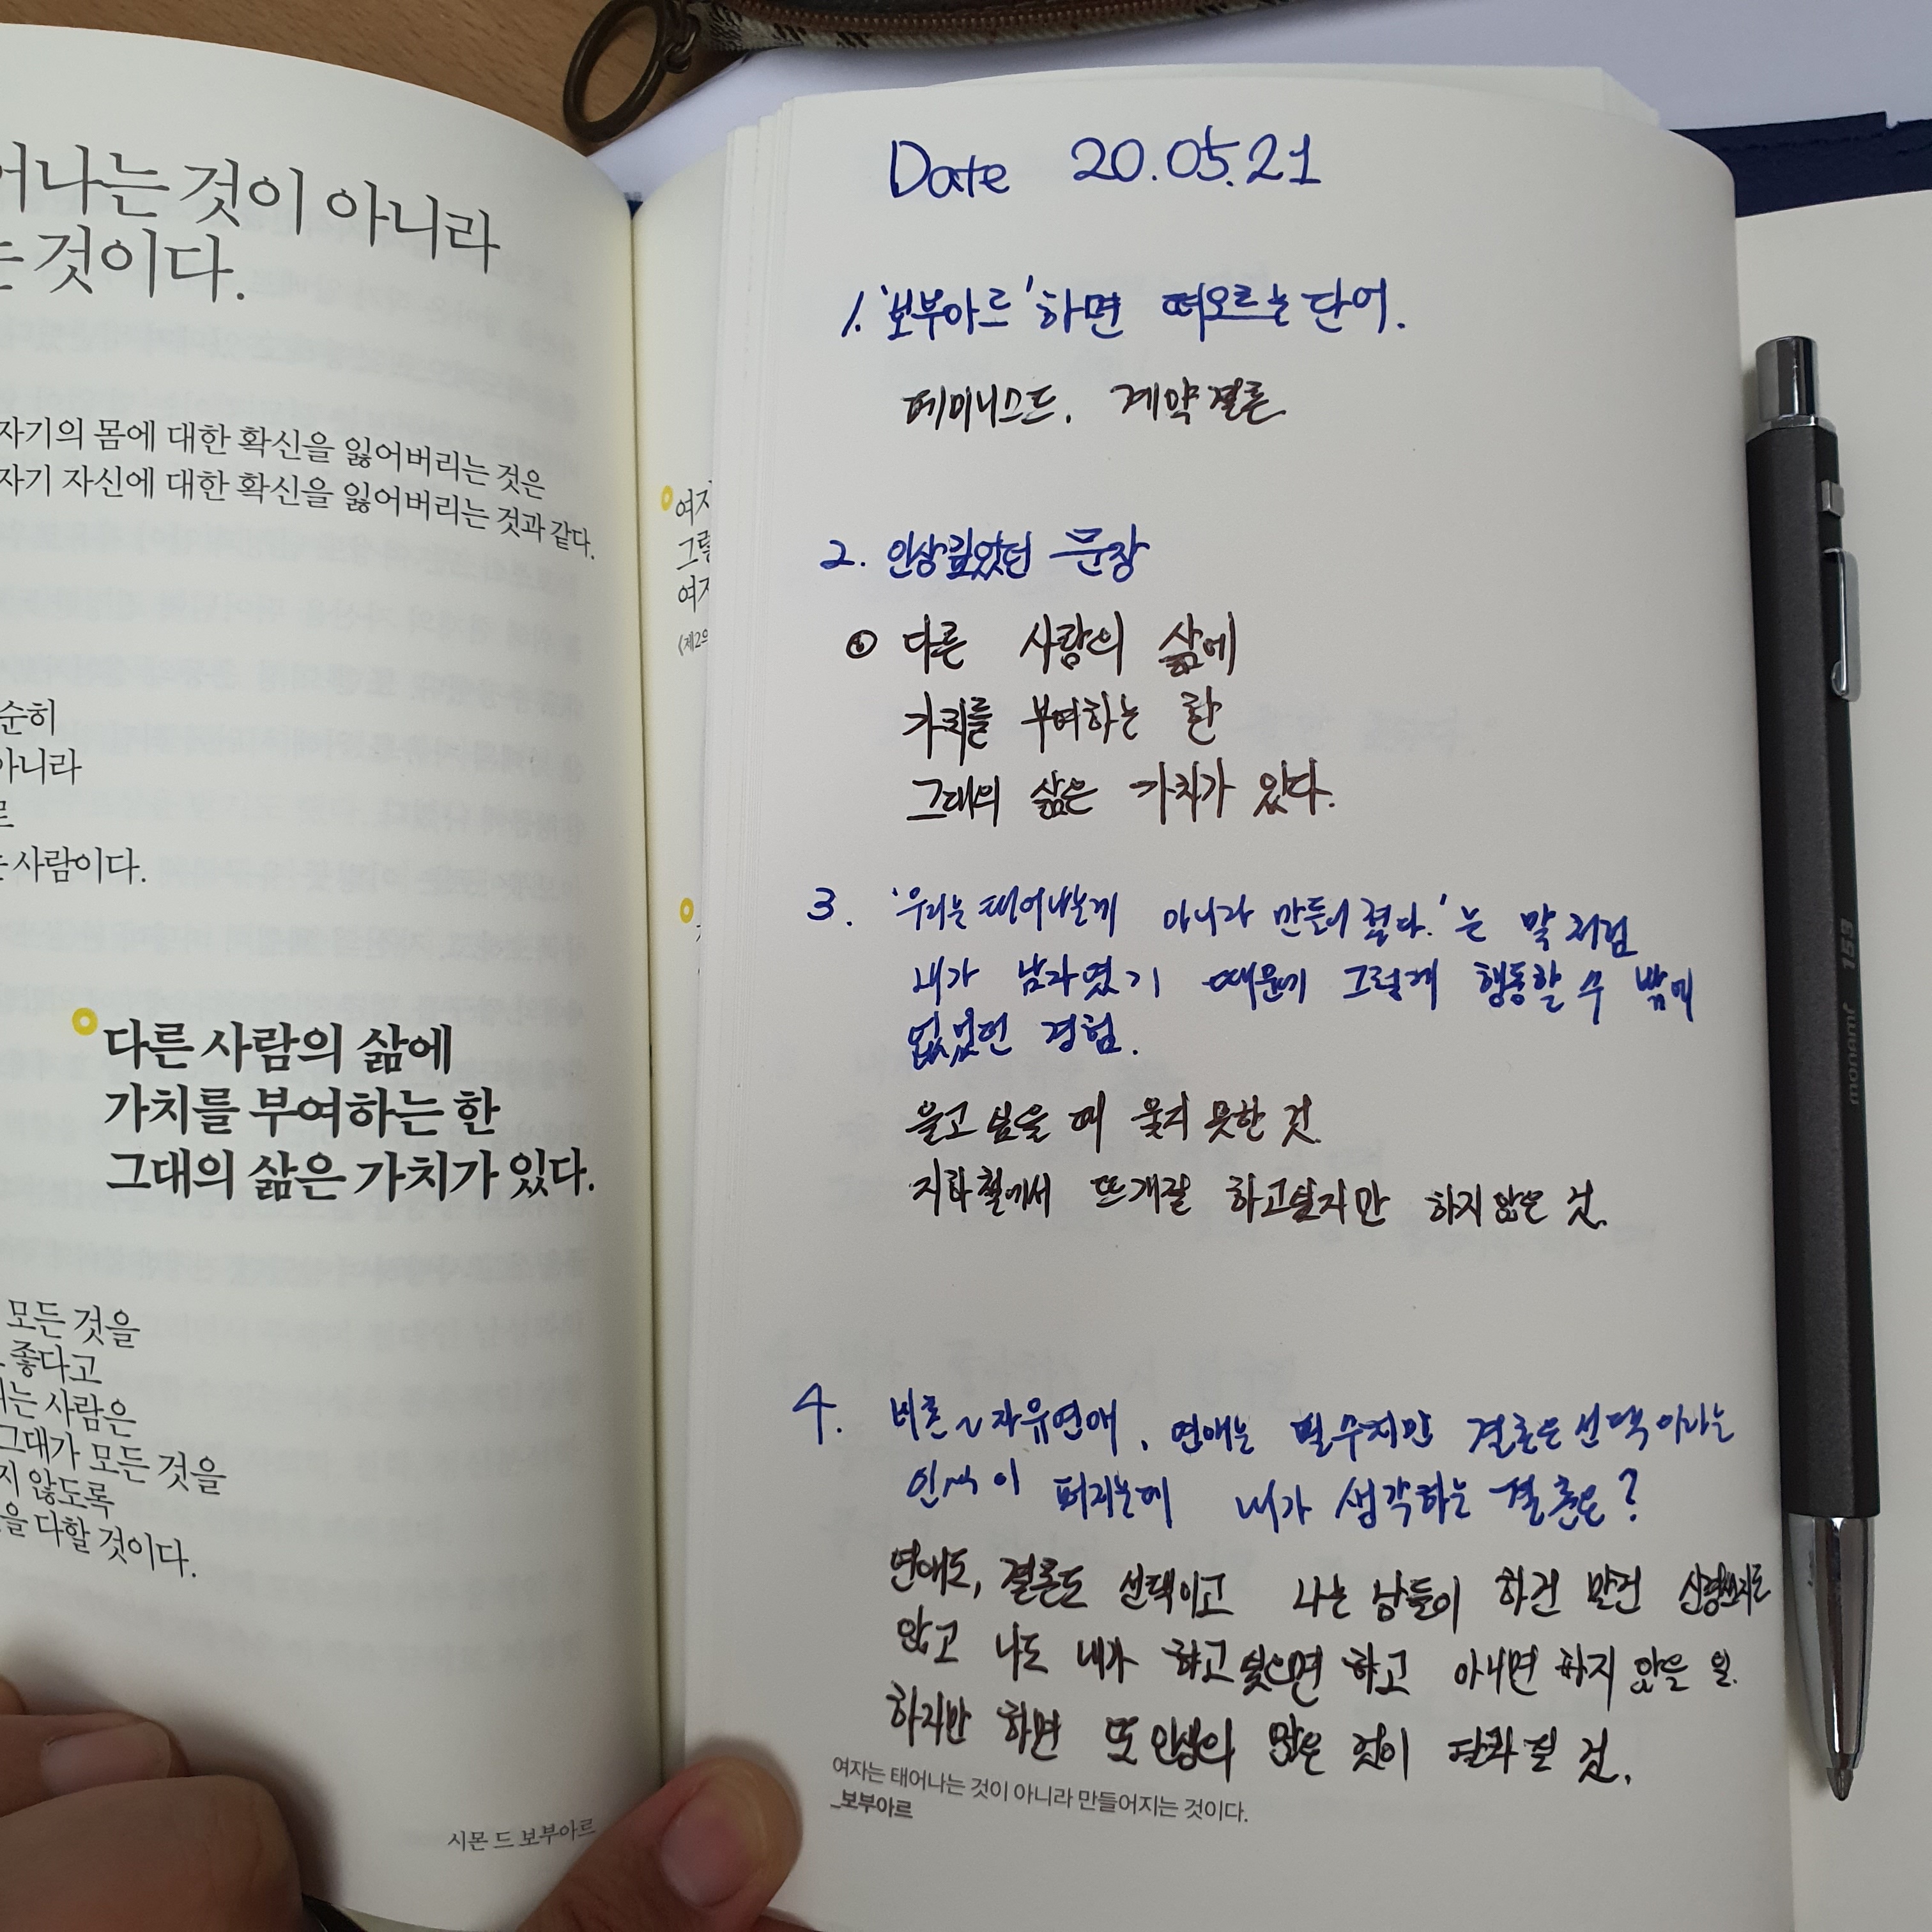 어나는 것이 아니라
는 것이다.
자기의 몸에 대한 확신을 잃어버리는 것은
자기 자신에 대한 확신을 잃어버리는 것과 같다.
순히
아니라
로
사람이다.
다른 사람의 삶에
가치를 부여하는 한
그대의 삶은 가치가 있다.
모든 것을
좋다고
는 사람은
그대가 모든 것을
지 않도록
을 다할 것이다.
시몬 드 보부아르
여자
그렇
여자
(제2의
Date 20.05.21
1. '보부아르' 하면 떠오르는 단어.
페미니스트, 계약결혼
2. 인상깊었던 문장
① 다른 사람의 삶에
가치를 부여하는 한
그대의 삶은 가치가 있다.
3. '우리는 태어나는게 아니라 만들어졌다.'는 말처럼
내가 남자였기 때문에 그렇게 행동할 수 밖에
없었던 경험.
울고 싶을 때 울지 못한 것
지하철에서 뜨개질 하고싶지만 하지 않은 것.
4. 비혼~자유연애, 연애는 필수지만 결혼은 선택이라는
인식이 퍼지는데 내가 생각하는 결혼은?
연애도, 결혼도 선택이고 나는 남들이 하건 말건 신경쓰지도
않고 나도 내가 하고싶으면 하고 아니면 하지 않을 일.
하지만 하면 또 인생의 많은 것이 달라질 것.
여자는 태어나는 것이 아니라 만들어지는 것이다.
_보부아르
153 monami